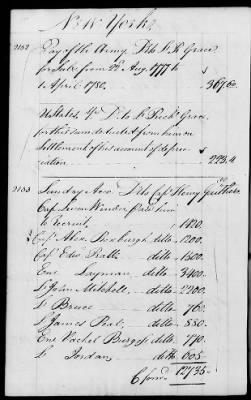 New York
2132 Pay of the Army Dr to L. R. Grace
for Sub. from 22d Aug. 1777 to
1 April 1780. $ 367.60
U. States, Dr to L. Richd. Grace
for this sum deducted from him on
settlement of his account of depre-
ciation $ 223.4
2133 Sundry Accs Dr to Capt Henry Gaither
Capt Levin Winder paid him
to recruit 1120.
Capt Alex Roxburgh ditto 1200.
Capt Edw ditto 1600.
Ens Layman ditto 3400.
Lt John Mitchell, ditto 2200.
Lt Bruce ditto 760.
Lt James Peal, ditto 880.
Ens Vachel Burgess ditto 770.
Lt Jordan, ditto 805.
12735.